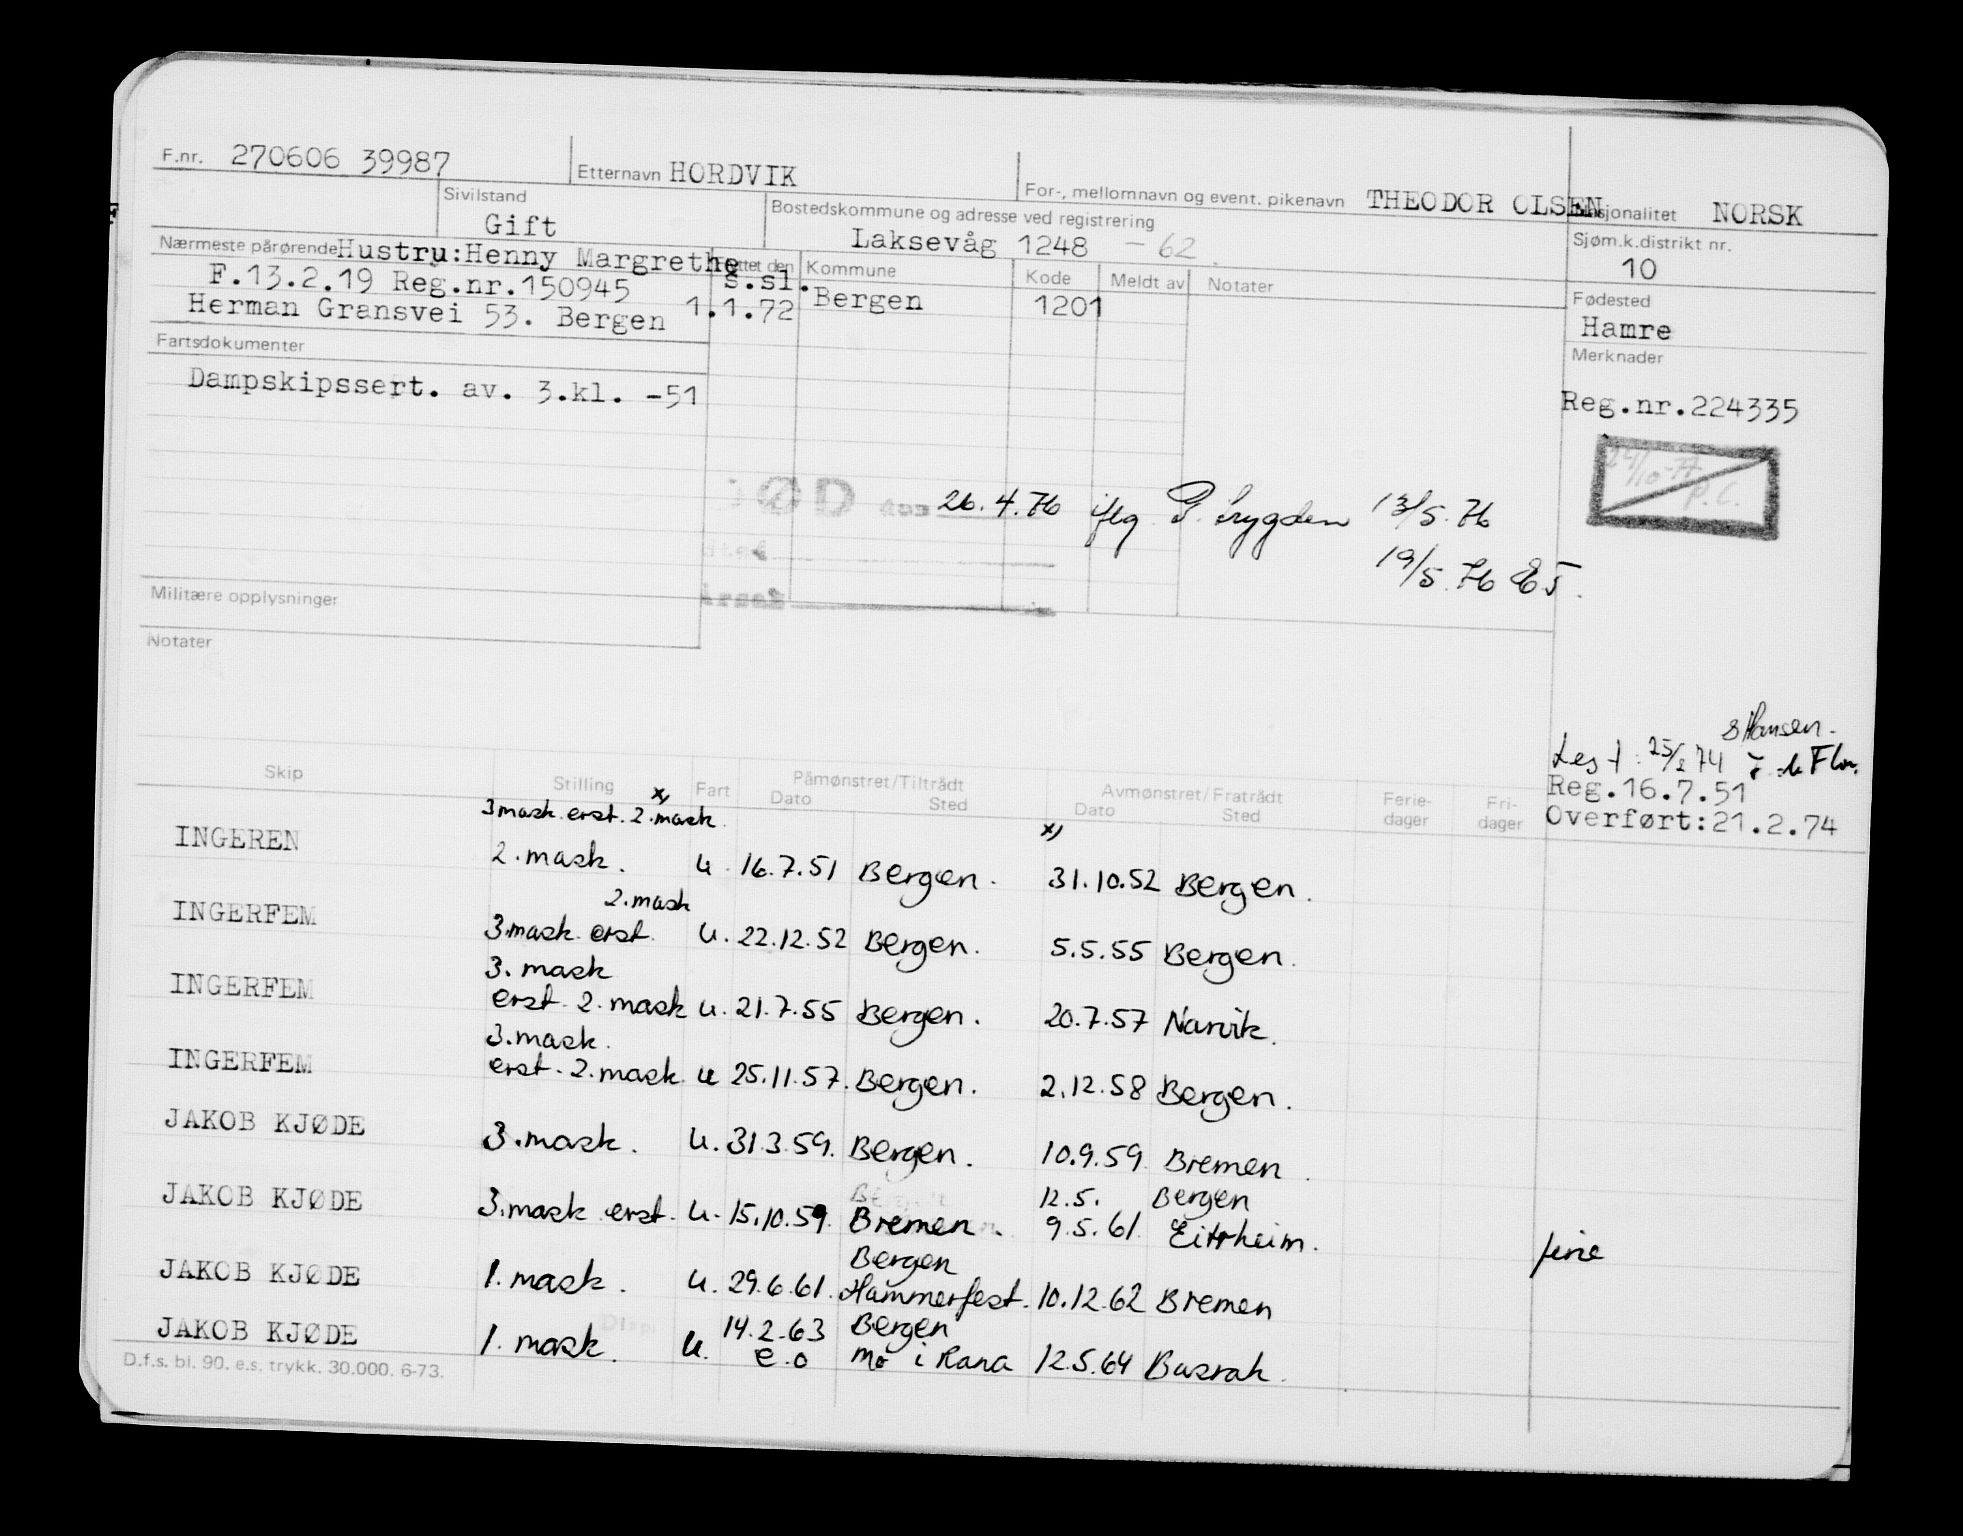 F.nr. 270606 39987 Etternavn HORDVIK For-, mellomnavn og event. pikenavn THEODOR OLSEN Nasjonalitet NORSK
Sivilstand Gift Bostedskommune og adresse ved registrering Laksevåg 1248 - 62 Sjøm.k.distrikt nr. 10
Nærmeste pårørende Hustru:Henny Margrethe
F.13.2.19 Reg.nr.150945
Herman Gransvei 53. Bergen
Flyttet den Kommune Kode Meldt av Notater
s.sl.
1.1.72 Bergen 1201
Fødested
Hamre
Merknader
Reg.nr.224335
24/10-77
P.C.
Fartsdokumenter
Dampskipssert. av. 3.kl. -51
DØD den 26.4.76 iflg 13/5.76
19/5.76
Årsak
Militære opplysninger
Notater
S Hansen.
25/2 74
Reg.16.7.51
Overført:21.2.74
Skip Stilling Fart Påmønstret/Tiltrådt Avmønstret/Fratrådt Ferie-dager Fri-dager
Dato Sted Dato Sted
x)
3 mask. erst. 2. mask.
x)
INGEREN 2. mask. u. 16.7.51 Bergen. 31.10.52 Bergen.
2. mask
INGERFEM 3. mask erst. u. 22.12.52 Bergen. 5.5.55 Bergen.
3. mask
INGERFEM erst. 2. mask u. 21.7.55 Bergen. 20.7.57 Narvik.
3. mask.
INGERFEM erst. 2. mask. u 25.11.57. Bergen. 2.12.58 Bergen.
JAKOB KJØDE 3. mask. u. 31.3.59. Bergen. 10.9.59. Bremen.
12.5. Bergen
JAKOB KJØDE 3. mask erst. u. 15.10.59. Bremen. 9.5.61. Eitrheim. ferie
Bergen
JAKOB KJØDE 1. mask. u. 29.6.61. Hammerfest. 10.12.62 Bremen
14.2.63 Bergen
JAKOB KJØDE 1. mask. u. e.o Mo i Rana 12.5.64 Basrah.
D.f.s. bl. 90. e.s. trykk. 30.000. 6-73.